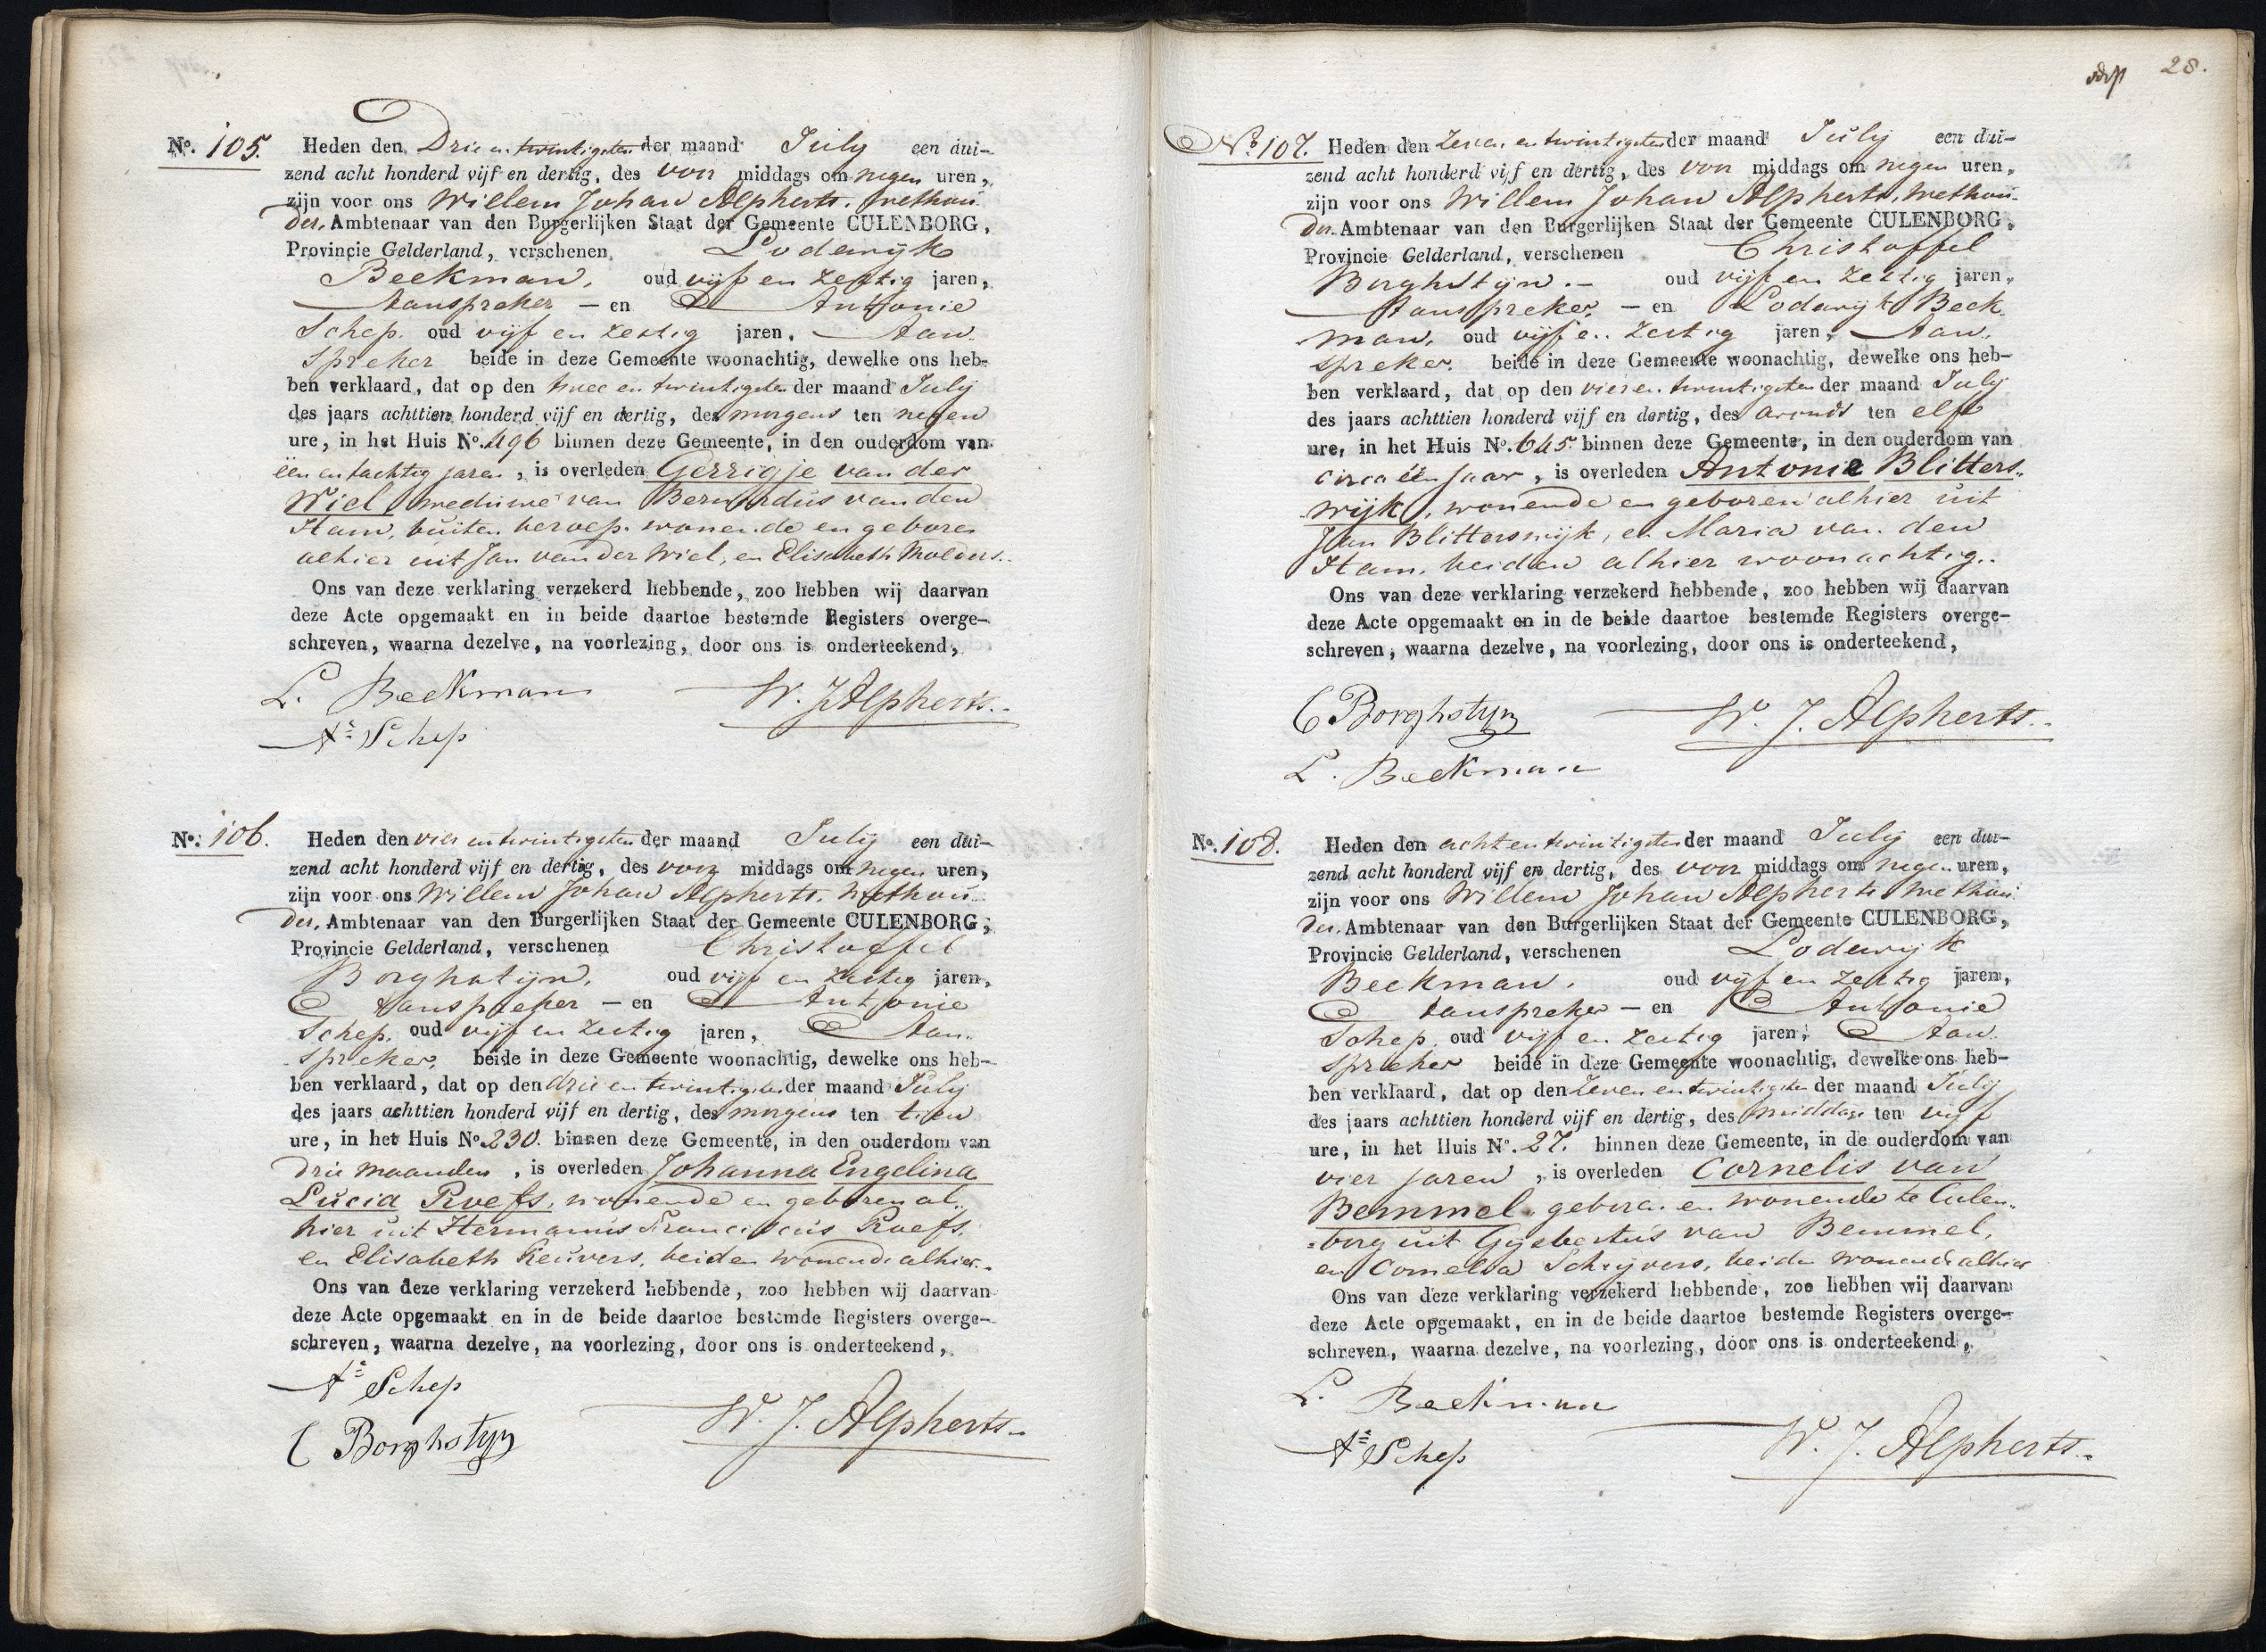 No. 105. Heden den Drie en twintigsten der maand July een dui-
zend acht honderd vijf en dertig, des voor middags om negen uren,
zijn voor ons Willem Johan Alpherts, wethou-
der, Ambtenaar van den Burgerlijken Staat der Gemeente CULENBORG,
Provincie Gelderland, verschenen Lodewijk
Beekman, oud vijf en zestig jaren,
Aanspreker — en Antonie
Schep, oud vijf en zestig jaren, Aan-
spreker beide in deze Gemeente woonachtig, dewelke ons heb-
ben verklaard, dat op den twee en twintigsten der maand July
des jaars achttien honderd vijf en dertig, des morgens ten negen
ure, in het Huis No. 496 binnen deze Gemeente, in den ouderdom van
één en tachtig jaren, is overleden Gerrigje van der
Wiel weduwe van Bernardus van den
Ham, buiten beroep, wonende en geboren
alhier uit Jan van der Wiel, en Elisabeth Molders..
Ons van deze verklaring verzekerd hebbende, zoo hebben wij daarvan
deze Acte opgemaakt en in beide daartoe bestemde Registers overge-
schreven, waarna dezelve, na voorlezing, door ons is onderteekend,
L. Beekman W. J. Alpherts..
An Schep
No. 106. Heden den vier en twintigsten der maand July een dui-
zend acht honderd vijf en dertig, des voor middags om negen uren,
zijn voor ons Willem Johan Alpherts, Wethou-
der, Ambtenaar van den Burgerlijken Staat der Gemeente CULENBORG,
Provincie Gelderland, verschenen Christoffel
Borghstijn, oud vijf en zestig jaren,
Aanspreker — en Antonie
Schep, oud vijf en zestig jaren, Aan-
spreker, beide in deze Gemeente woonachtig, dewelke ons heb-
ben verklaard, dat op den drie en twintigsten der maand July
des jaars achttien honderd vijf en dertig, des morgens ten tien
ure, in het Huis No. 230. binnen deze Gemeente, in den ouderdom van
drie maanden, is overleden Johanna Engelina
Lucia Roefs, wonende en geboren al-
hier uit Hermanus Franciscus Roefs,
en Elisabeth Keuvers, beiden wonende alhier.
Ons van deze verklaring verzekerd hebbende, zoo hebben wij daarvan
deze Acte opgemaakt en in de beide daartoe bestemde Registers overge-
schreven, waarna dezelve, na voorlezing, door ons is onderteekend,
An Schep
C Borghstyn W. J. Alpherts..
28.
No. 107. Heden den Zeven en twintigsten der maand July een dui-
zend acht honderd vijf en dertig, des voor middags om negen uren,
zijn voor ons Willem Johan Alpherts, Wethou-
der. Ambtenaar van den Burgerlijken Staat der Gemeente CULENBORG,
Provincie Gelderland, verschenen Christoffel
Borghstijn. oud vijf en zestig jaren,
Aanspreker — en Lodewijk Beek-
man, oud vijf en zestig jaren, Aan-
spreker, beide in deze Gemeente woonachtig, dewelke ons heb-
ben verklaard, dat op den vier en twintigsten der maand July
des jaars achttien honderd vijf en dertig, des avonds ten elf
ure, in het Huis No. 645 binnen deze Gemeente, in den ouderdom van
circa één jaar, is overleden Antonie Blitters-
wijk, wonende en geboren alhier uit
Jan Blitterswijk, en Maria van den
Ham, beiden alhier woonachtig..
Ons van deze verklaring verzekerd hebbende, zoo hebben wij daarvan
deze Acte opgemaakt en in de beide daartoe bestemde Registers overge-
schreven, waarna dezelve, na voorlezing, door ons is onderteekend,
C Borghstyn W. J. Alpherts..
L. Beekman
No. 108. Heden den acht en twintigsten der maand July een dui-
zend acht honderd vijf en dertig, des voor middags om negen uren,
zijn voor ons Willem Johan Alpherts Wethou-
der. Ambtenaar van den Burgerlijken Staat der Gemeente CULENBORG,
Provincie Gelderland, verschenen Lodewijk
Beekman, oud vijf en zestig jaren,
Aanspreker — en Antonie
Schep, oud vijf en zestig jaren, Aan-
spreker beide in deze Gemeente woonachtig, dewelke ons heb-
ben verklaard, dat op den Zeven en twintigsten der maand July
des jaars achttien honderd vijf en dertig, des middags ten vijf
ure, in het Huis No. 27. binnen deze Gemeente, in de ouderdom van
vier jaren, is overleden Cornelis van
Bemmel, geboren en wonende te Culen-
borg uit Gijsbertus van Bemmel,
en Cornelia Schrijvers, beiden wonende alhier
Ons van deze verklaring verzekerd hebbende, zoo hebben wij daarvan
deze Acte opgemaakt, en in de beide daartoe bestemde Registers overge-
schreven, waarna dezelve, na voorlezing, door ons is onderteekend,
L. Beekman
An Schep W. J. Alpherts..